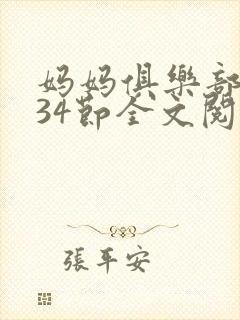 妈妈俱樂部
34節全文閱
張平安